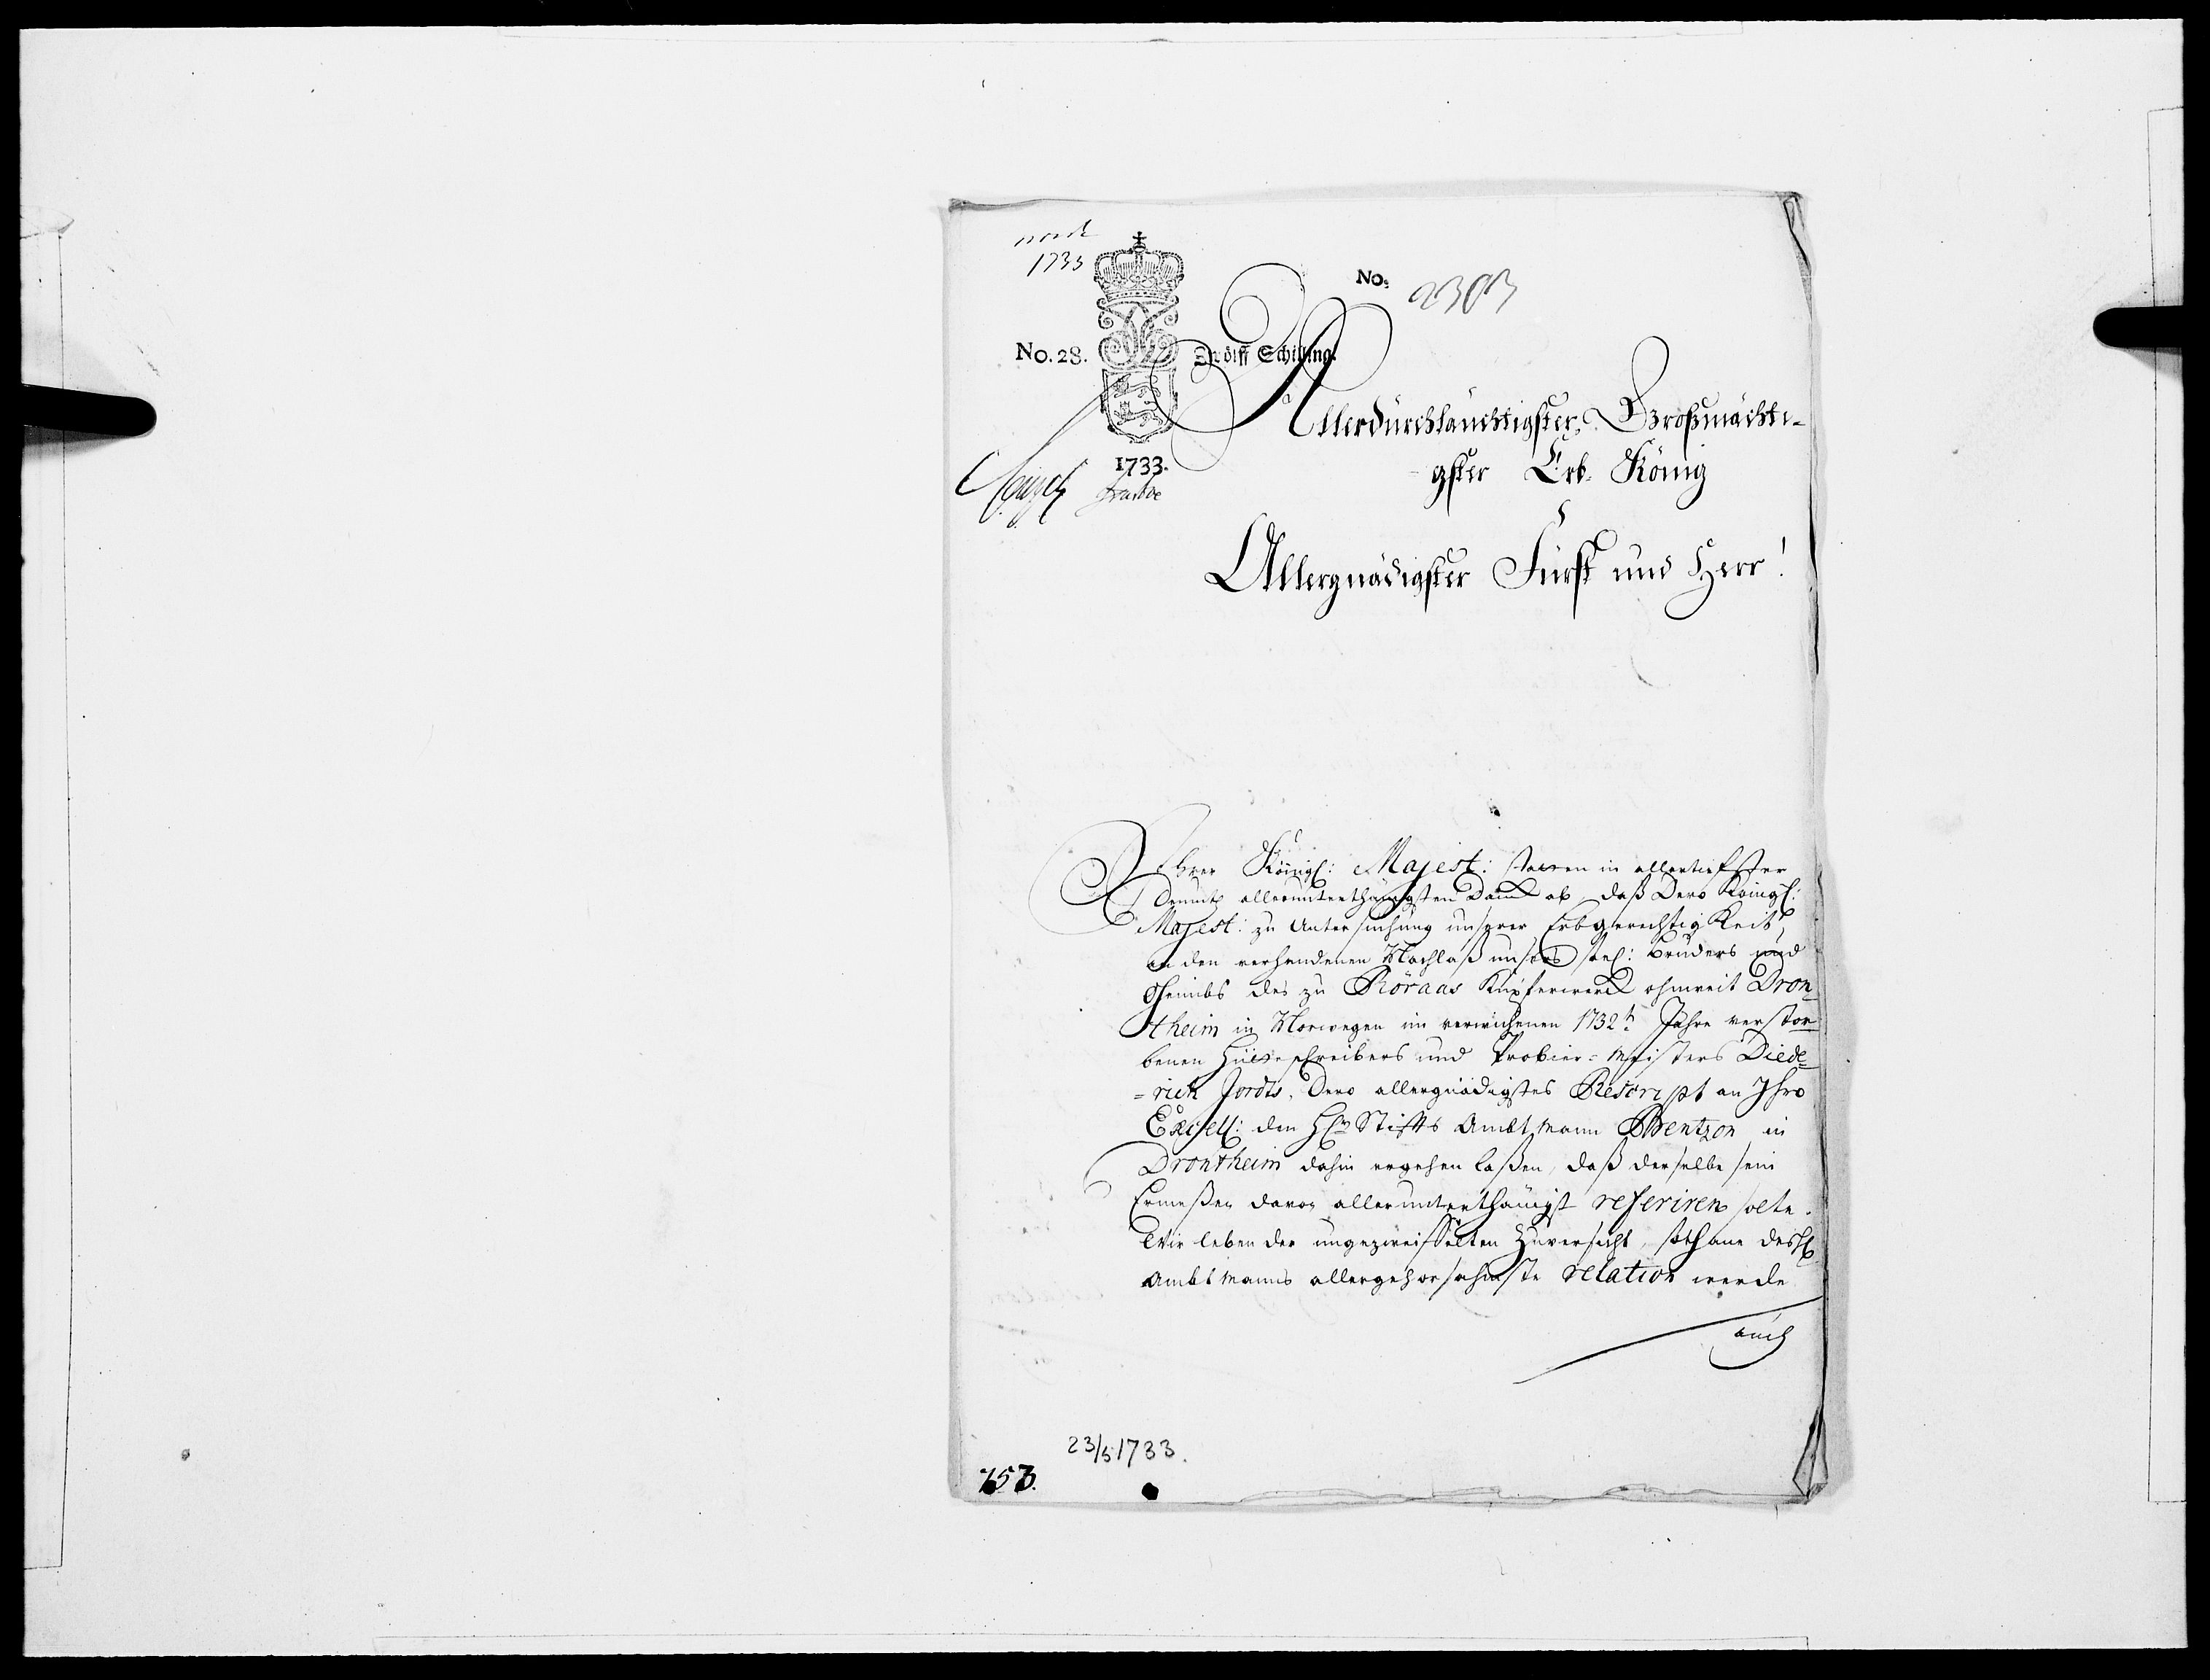 norsk
1733
No. 2303
No. 28. Zwölff Schilling.
1733.
Allerdurchläuchtigster, Grosmächti-
gster Erb- König
Allergnädigster Fürst und Herr!
Ihrer Königl: Majest: statten in allertiefster
Demuth allerunterthänigsten Danck ab, daß Dero Königl:
Majest: zu Untersuchung unserer Erbgerechtigkeit,
an den verhandenen Nachlaß unsers seel: Bruders und
Oheimbs des zu Röraas Kupferwerck ohnweit Dron
theim in Norwegen im verwichenen 1732t Jahre verstor
benen Hütteschreibers und Probier-Meisters Diede
=rich Jordts, Dero allergnädigstes Rescript an Ihro
Excell: den Hrn Stiffts Ambtmann Bentzon in
Drontheim dahin ergehen laßen, daß derselbe sein
Ermeßen davon allerunterthänigst referiren solte.
Wir leben der ungezweiffelten Zuversicht, sothane des H
Ambtmanns allergehorsahmste relation werde
auch
23/5 1733.
753.